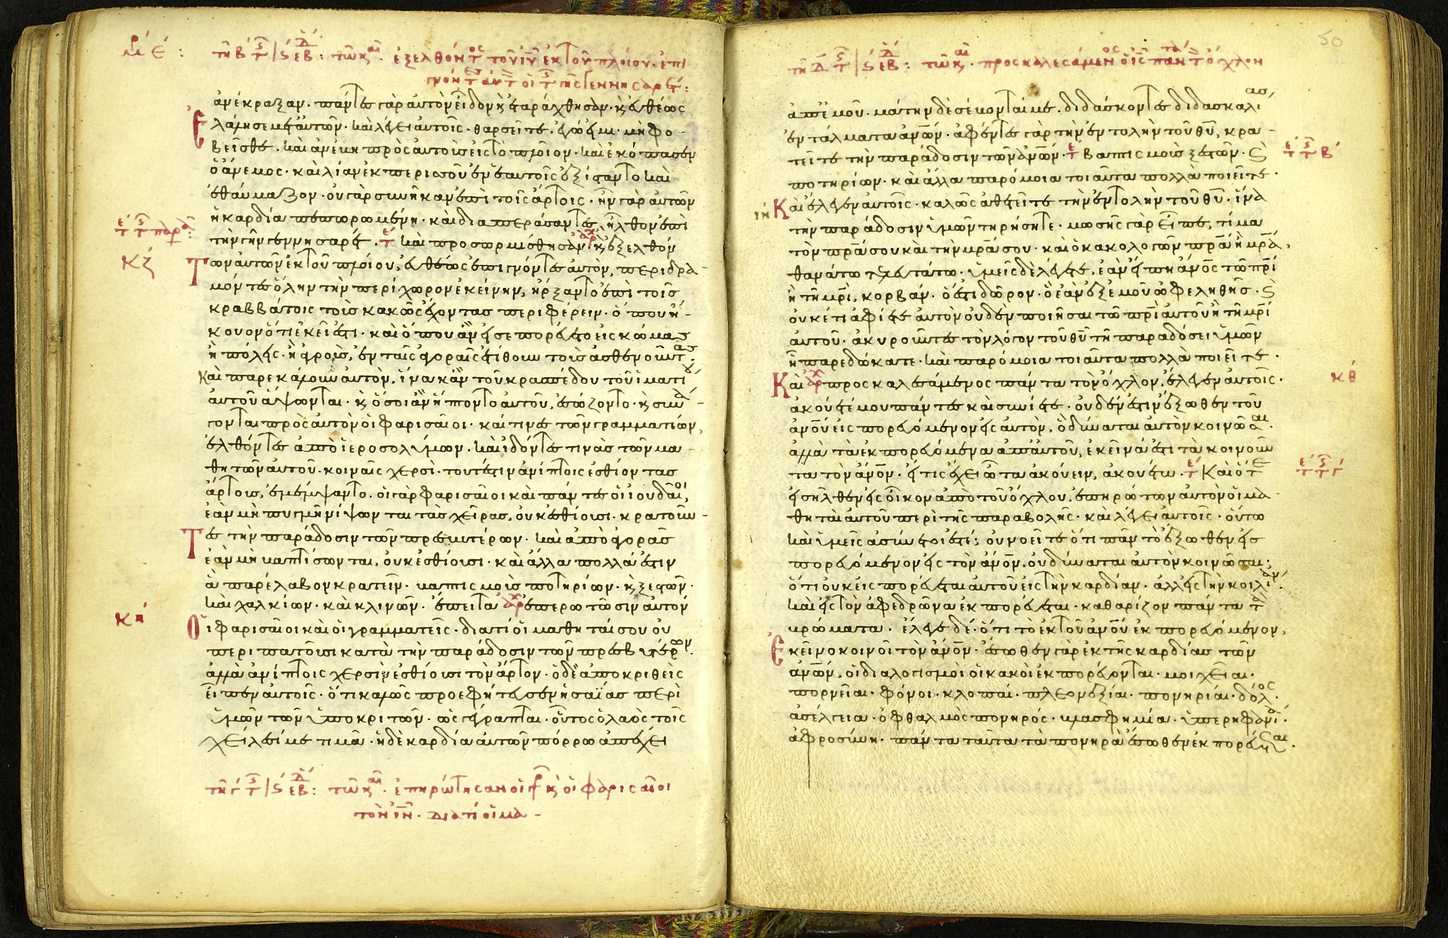 ἐξελθόντος τοῦ ἰῦ ἐκ τοῦ πλοίου. ἐπι
γνόντες αὐτὸν οἱ τῆς γεννησαρέτ:
ἀνέκραξαν· πάντες γὰρ αὐτὸν εἶδον κ ἐταράχθησαν· κ εὐθέως
ἐλάλησε μετ αὐτῶν· καὶ λέγει αὐτοῖς· θαρσεῖτε. ἐγώ εἰμι· μὴ φο
βεῖσθε· καὶ ἀνέβη πρὸς αὐτοὺς εἰς τὸ πλοῖον· καὶ ἐκόπασεν
ὁ ἄνεμος· καὶ λίαν ἐκ περισσοῦ ἐν ἑαυτοῖς ἐξίσταντο καὶ
ἐθαύμαζον· οὐ γὰρ συνῆκαν ἐπὶ τοῖς ἄρτοις· ἦν γὰρ αὐτῶν
ἡ καρδία πεπωρωμένη· καὶ διαπεράσαντες, ἦλθον ἐπὶ
τὴν γῆν γεννησαρέτ· καὶ προσωρμίσθησαν· κ ἐξελθόν
των αὐτῶν ἐκ τοῦ πλοίου, εὐθέως ἐπιγνόντες αὐτὸν, περιδρα
μόντες ὅλην τὴν περίχωρον ἐκείνην, ἤρξαντο ἐπὶ τοῖς
κραββάτοις τοὺς κακῶς ἔχοντας περιφέρειν· ὅπου ἤ
κουον ὅτι ἐκεῖ ἐστι· καὶ ὅπου ἂν εἰσεπορεύετο εἰς κώμας
ἢ πόλεις· ἢ ἀγρους, ἐν ταῖς ἀγοραῖς ἐτίθουν τοὺς ἀσθενοῦντας·
καὶ παρεκάλουν αὐτὸν, ἵνα κἂν τοῦ κρασπέδου τοῦ ἱματίου
αὐτοῦ ἅψωνται· κ ὅσοι ἂν ἥπτοντο αὐτοῦ, ἐσώζοντο· κ συνά
γονται πρὸς αὐτὸν οἱ φαρισαῖοι· καί τινες τῶν γραμματέων,
ἐλθόντες ἀπὸ ἱεροσολύμων· καὶ ἰδόντες τινὰς τῶν μα
θητῶν αὐτοῦ· κοιναῖς χερσὶ· τουτέστιν ἀνίπτοις ἐσθίοντας
ἄρτους, ἐμέμψαντο. οἱ γὰρ φαρισαῖοι καὶ πάντες οἱ ἰουδαῖοι,
ἐὰν μὴ πυγμῆ νίψωνται τὰς χεῖρας, οὐκ ἐσθίουσι· κρατοῦν
τες τὴν παράδοσιν τῶν πρεσβυτέρων· καὶ ἀπὸ ἀγορᾶς
ἐὰν μὴ βαπτίσωνται, οὐκ ἐσθίουσι· καὶ ἄλλα πολλά ἐστιν
ἃ παρέλαβον κρατεῖν· βαπτισμοὺς ποτηρίων· κ ξεστῶν·
καὶ χαλκίων· καὶ κλινῶν· ἔπειτα ἐπερωτῶσιν αὐτὸν
οἱ φαρισαῖοι καὶ οἱ γραμματεῖς· διατί οἱ μαθηταί σου οὐ
περιπατοῦσι κατὰ τὴν παράδοσιν τῶν πρεσβυτέρων·
ἀλλὰ ἀνίπτοις χερσὶν ἐσθίουσι τὸν ἄρτον· ὁ δὲ ἀποκριθεὶς
εἶπεν αὐτοῖς· ὅτι καλῶς προεφήτευσεν ἡσαΐας περὶ
ὑμῶν τῶν ὑποκριτῶν· ὡς γέγραπται· οὗτος ὁ λαὸς τοῖς
χείλεσί με τιμᾶ· ἡ δὲ καρδία αὐτῶν πόρρω ἀπέχει
ἐπηρώτησαν οἱ κ οἱ φαρισαῖοι
τὸν ἰῦ. διατί οἱ μα
κζ
κη
50
προσκαλεσάμενος ὁ ἰς πάντα τὸν ὄχλον
ἀπ ἐμοῦ. μάτην δὲ σέβονταί με. διδάσκοντες διδασκαλίας
ἐντάλματα ἀνῶν· ἀφέντες γὰρ τὴν ἐντολὴν τοῦ θῦ, κρα
τεῖτε τὴν παράδοσιν τῶν ἀνῶν· βαπτισμοὺς ξεστῶν· κ
ποτηρίων· καὶ ἄλλα παρόμοια τοιαῦτα πολλὰ ποιεῖτε·
Καὶ ἔλεγεν αὐτοῖς· καλῶς ἀθετεῖτε τὴν ἐντολὴν τοῦ θῦ· ἵνα
τὴν παράδοσιν ὑμῶν τηρήσητε· μωσῆς γὰρ εἶπε, τίμα
τὸν πρα σου καὶ τὴν μρα σου· καὶ ὁ κακολογῶν πρα ἢ μρα,
θανάτω τελευτάτω· ὑμεῖς δὲ λέγετε, ἐὰν εἴπη ἄνος τῶ πρι
ἢ τῆ μρι, κορβᾶν· ὅ ἐστι δῶρον· ὃ ἐὰν ἐξ ἐμοῦ ὠφεληθῆς· κ
οὐκέτι ἀφίετε αὐτὸν οὐδὲν ποιῆσαι τῶ πρι αὐτοῦ ἢ τῆ μρι
αὐτοῦ· ἀκυροῦντες τὸν λόγον τοῦ θῦ τῆ παραδόσει ὑμῶν
ἧ παρεδώκατε· καὶ παρόμοια τοιαῦτα πολλὰ ποιεῖτε·
Καὶ προσκαλεσάμενος πάντα τὸν ὄχλον, ἔλεγεν αὐτοῖς·
ἀκούετέ μου πάντες καὶ συνίετε· οὐδέν ἐστιν ἔξωθεν τοῦ
ἀνου εἰσπορευόμενον εἰς αὐτὸν, ὃ δύναται αὐτὸν κοινῶσαι·
ἀλλὰ τὰ ἐκπορευόμενα ἀπ αὐτοῦ, ἐκεῖνά ἐστι τὰ κοινοῦν
τα τὸν ἄνον· εἴ τις ἔχει ὦτα ἀκούειν, ἀκουέτω· Καὶ ὅτε
εἰσῆλθεν εἰς οἶκον ἀπὸ τοῦ ὄχλου, ἐπηρώτων αὐτὸν οἱ μα
θηταὶ αὐτοῦ περὶ τῆς παραβολῆς· καὶ λέγει αὐτοῖς· οὕτω
καὶ ὑμεῖς ἀσύνετοί ἐστε; οὐ νοεῖτε ὅτι πᾶν τὸ ἔξωθεν εἰσ
πορευόμενον εἰς τὸν ἄνον, οὐ δύναται αὐτὸν κοινῶσαι;
ὅτι οὐκ εἰσπορεύεται αὐτοῦ εἰς τὴν καρδίαν· ἀλλ εἰς τὴν κοιλίαν·
καὶ εἰς τὸν ἀφεδρῶνα ἐκπορεύεται· καθαρίζον πάντα τὰ
βρώματα· ἔλεγε δέ· ὅτι τὸ ἐκ τοῦ ἀνου ἐκπορευόμενον,
ἐκεῖνο κοινοῖ τὸν ἄνον· ἔσωθεν γὰρ ἐκ τῆς καρδίας τῶν
ἀνων, οἱ διαλογισμοὶ οἱ κακοὶ ἐκπορεύονται· μοιχεῖαι·
πορνεῖαι· φόνοι· κλοπαί· πλεονεξίαι· πονηρίαι· δόλος·
ἀσέλγεια· ὀφθαλμὸς πονηρός· βλασφημία· ὑπερηφανία·
ἀφροσύνη· πάντα ταῦτα τὰ πονηρὰ ἔσωθεν ἐκπορεύεται·
κθ